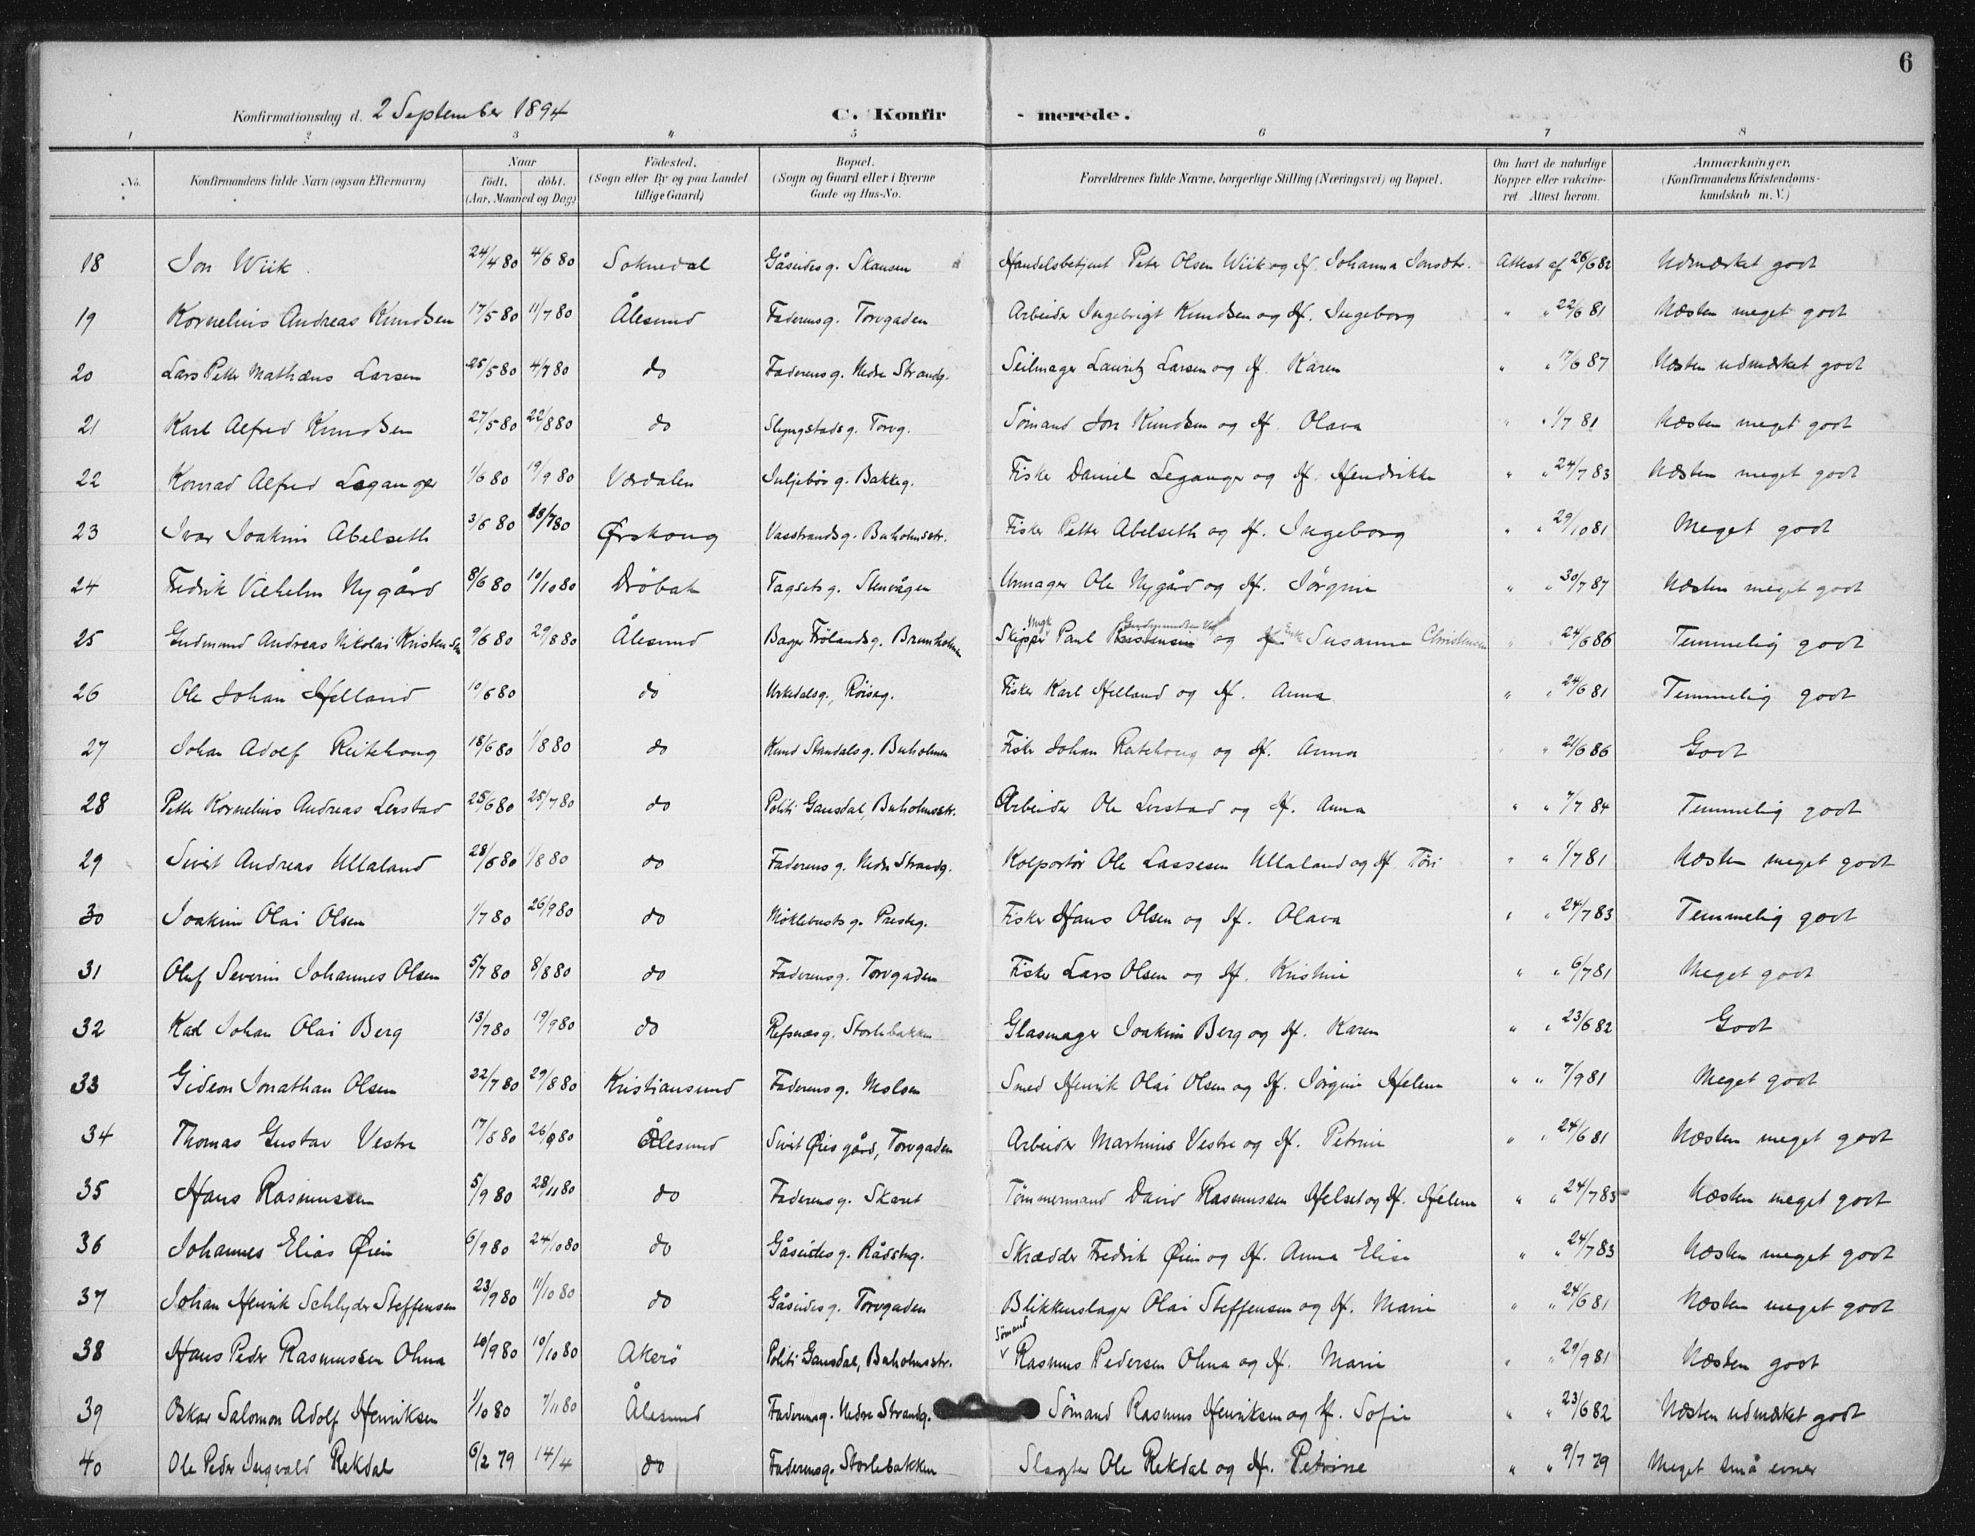 6
Konfirmationsdag d. 2 September 1894 C. Konfir - merede.
1 2 3 4 5 6 7 8
No. Konfirmandens fulde Navn (ogsaa Efternavn) Naar födt. döbt. (Aar, Maaned og Dag) Födested. (Sogn eller By og paa Landet tillige Gaard) Bopæl. (Sogn og Gaard eller i Byerne Gade og Hus-No. Forældrenes fulde Navne, borgerlige Stilling (Næringsvei) og Bopæl. Om havt de naturlige Kopper eller vakcineret. Attest herom. Anmærkninger. (Konfirmandens Kristendomskundskab m. V.)
18 Jon Wiik. 24/4 80 4/6 80 Soknedal Gåseidesg. Skansen Handelsbetjent Peter Olsen Wiik og H. Johanna Jonsdtr. Attest af 26/6 82 Udmærket godt
19 Kornelius Andreas Knudsen 17/5 80 11/7 80 Ålesund Faderensg. Torvgaden Arbeider Ingebrigt Knudsen og H. Ingeborg " " 22/6 81 Næsten meget godt
20 Lars Petter Mathæus Larsen 25/5 80 4/7 80 do Faderensg. Nedre Strandg. Seilmager Lauritz Larsen og H. Karen " " 17/6 87 Næsten udmærket godt
21 Karl Alfred Knudsen 27/5 80 22/8 80 do Slyngstadsg. Torvg. Sømand Jon Knudsen og H. Olava " " 1/7 81 Næsten meget godt
22 Konrad Alfred Leganger 1/6 80 19/9 80 Værdalen Juljebøsg. Bakkeg. Fisker Daniel Leganger og H. Hendrikke " " 24/7 83 Næsten meget godt
23 Ivar Joakim Abelseth 3/6 80 18/7 80 Ørskoug Vasstrandsg. Buholmsstr. Fisker Petter Abelseth og H. Ingeborg " " 29/10 81 Meget godt
24 Fredrik Vilhelm Nygård 8/6 80 10/10 80 Drøbak Tagsetsg. Stenvågen Urmager Ole Nygård og H. Jørgine " " 30/7 87 Næsten meget godt
25 Gudmund Andreas Nikolai Kristensen 9/6 80 29/8 80 Ålesund Bager Frølandsg. Brunholmen Skipper Paul Kristensen og H. Enke Susanne Christensen " " 24/6 86 Temmelig godt
26 Ole Johan Helland 10/6 80 do Urkedalsg., Røiseg. Fisker Karl Helland og H. Anna " " 24/6 81 Temmelig godt
27 Johan Adolf Reitehoug 18/6 80 1/8 80 do Knud Standalsg. Buholmen Fisker Johan Reitehoug og H. Anna " " 21/6 86 Godt
28 Petter Kornelius Andreas Lerstad 25/6 80 25/7 80 do Politi Gausdal, Buholmsstr. Arbeider Ole Lerstad og H. Anna " " 7/7 84 Temmelig godt
29 Sivert Andreas Ullaland 28/6 80 1/8 80 do Faderensg. Nedre Strandg. Kolportør Ole Lassesen Ullaland og H. Tøri " " 1/7 81 Næsten meget godt
30 Joakim Olai Olsen 1/7 80 26/9 80 do Møklebustsg. Presteg. Fisker Hans Olsen og H. Olava " " 24/7 83 Temmelig godt
31 Oluf Severin Johannes Olsen 5/7 80 8/8 80 do Faderensg. Torvgaden Fisker Lars Olsen og H. Kristine " " 6/7 81 Meget godt
32 Karl Johan Olai Berg 13/7 80 19/9 80 do Refsnæsg. Storlebakken Glasmager Joakim Berg og H. Karen " " 23/6 82 Godt
33 Gideon Jonathan Olsen 22/7 80 29/8 80 Kristiansund Faderensg. Molsen Smed Henrik Olai Olsen og H. Jørgine Helene " " 7/9 81 Meget godt
34 Thomas Gustav Vestre 17/8 80 26/9 80 Ålesund Sivert Øiesgård, Torvgaden Arbeider Martinus Vestre og H. Petrine " " 24/6 81 Næsten meget godt
35 Hans Rasmussen 5/9 80 28/11 80 do Faderensg. Skaret Tømmermand David Rasmussen Helset og H. Helene " " 24/7 83 Næsten meget godt
36 Johannes Elias Øien 6/9 80 24/10 80 do Gåseidesg. Rådstug. Skrædder Fredrik Øien og H. Anna Elise " " 24/7 83 Næsten meget godt
37 Johan Henrik Schlyder Steffensen 23/9 80 11/10 80 do Gåseidesg. Torvgaden Blikkenslager Olai Steffensen og H. Marie " " 24/6 81 Næsten meget godt
38 Hans Peder Rasmussen Ohna 10/9 80 10/10 80 Akerø Politi Gausdal, Buholmsstr. Sømand Rasmus Pedersen Ohna og H. Marie " " 29/9 81 Næsten godt
39 Oskar Salomon Adolf Henriksen 1/10 80 7/11 80 Ålesund Faderensg. Nedre Strandg. Sømand Rasmus Henriksen og H. Sofie " " 23/6 82 Næsten udmærket godt
40 Ole Peder Ingvald Rekdal 6/2 79 14/4 do Faderensg. Storlebakken Slagter Ole Rekdal og H. Petrine " " 9/7 79 Meget små evner